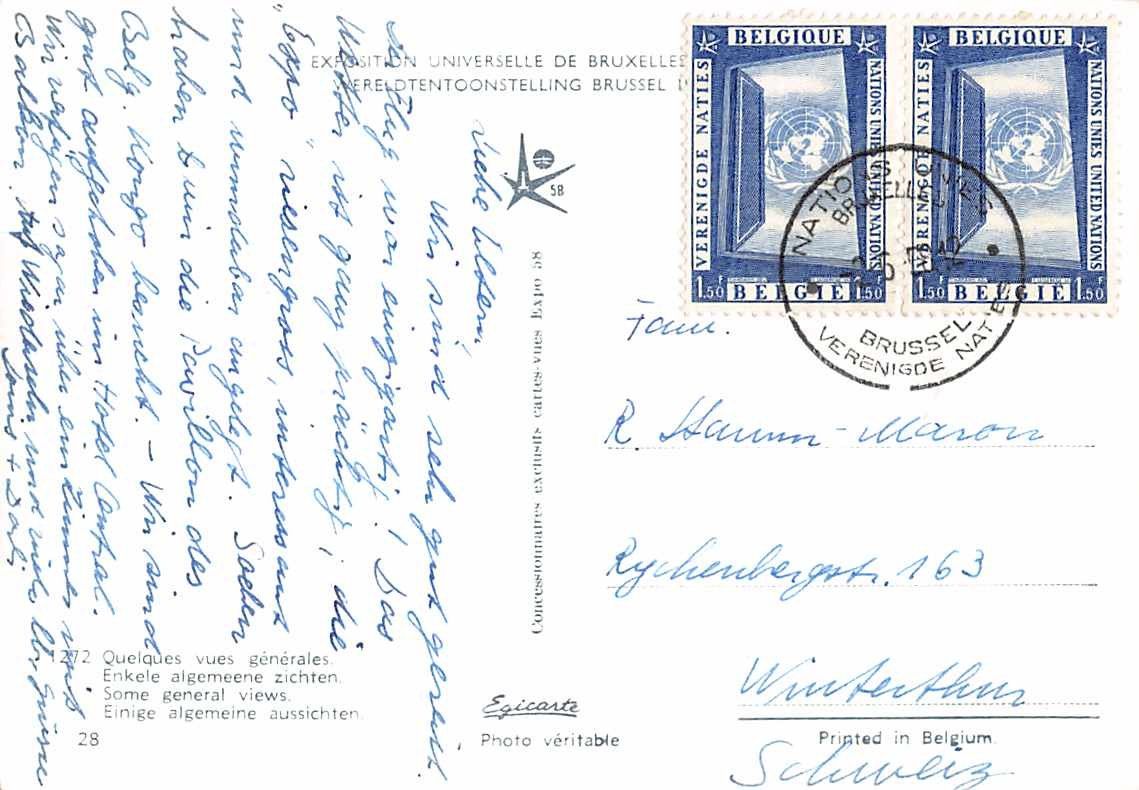 EXPOSITION UNIVERSELLE DE BRUXELLES
WERELDTENTOONSTELLING BRUSSEL 1
58
Liebe Eltern,
Wir sind sehr gut gereist.
der Flug war einzigartig! Das
Wetter ist ganz prächtig, die
"Expo" riesengross, interessant
und wunderbar angelegt. Soeben
haben wir die Pavillon des
Belg. Kongo besucht. – Wir sind
gut aufgehoben im Hotel Central.
Wir verfügen sogar über ein Zimmer mit
Balkon. Auf Wiedersehn und viele lb. Grüsse
Louis +
1272 Quelques vues générales.
Enkele algemeene zichten.
Some general views.
Einige algemeine aussichten.
28
Concessionnaires exclusifs cartes-vues Expo 58
Egicarte
Photo véritable
BELGIQUE
VERENIGDE NATIES
NATIONS UNIES UNITED NATIONS
1.50 F BELGIE 1.50 F
BELGIQUE
VERENIGDE NATIES
NATIONS UNIES UNITED NATIONS
1.50 F BELGIE 1.50 F
NATIONS UNIES
BRUXELLES
BRUSSEL
VERENIGDE NATIES
Fam.
R. Hamm-Maron
Rychenbergstr. 163
Winterthur
Schweiz
Printed in Belgium.